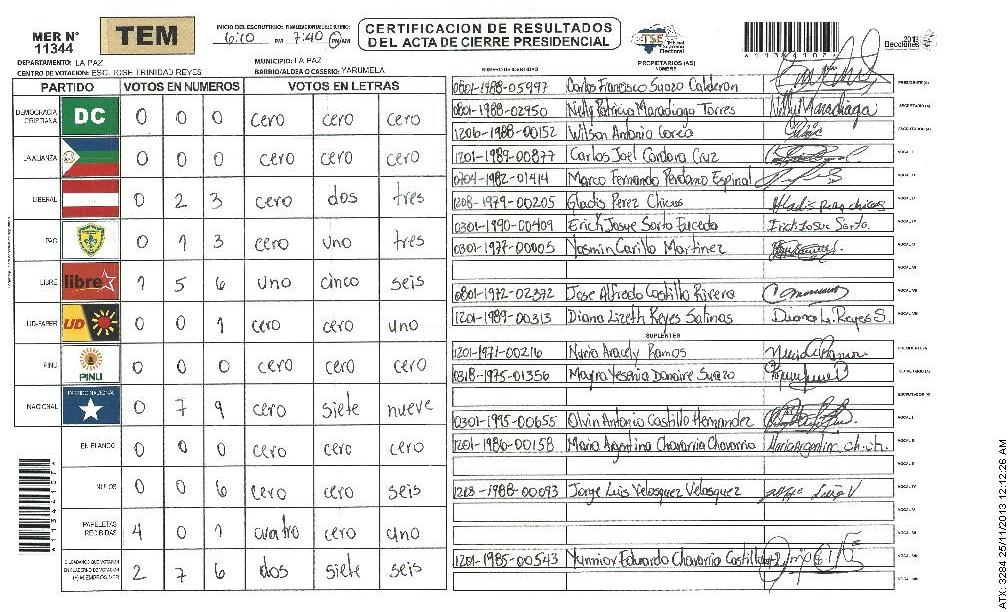 MER N° 11344
TEM
INICIO DEL ESCRUTINIO: 6:10 PM FINALIZACION DEL ESCRUTINIO: 7:40 AM PM
CERTIFICACION DE RESULTADOS
DEL ACTA DE CIERRE PRESIDENCIAL
TSE Tribunal Supremo Electoral
A11344107
Elecciones 2013
DEPARTAMENTO: LA PAZ MUNICIPIO: LA PAZ
CENTRO DE VOTACION: ESC. JOSE TRINIDAD REYES BARRIO/ALDEA O CASERIO: YARUMELA
PARTIDO VOTOS EN NUMEROS VOTOS EN LETRAS
DEMOCRACIA CRISTIANA DC 0 0 0 cero cero cero
LA ALIANZA 0 0 0 cero cero cero
LIBERAL 0 2 3 cero dos tres
PAC 0 1 3 cero uno tres
LIBRE libre 1 5 6 uno cinco seis
UD-FAPER UD 0 0 1 cero cero uno
PINU PINU 0 0 0 cero cero cero
NACIONAL PARTIDO NACIONAL 0 7 9 cero siete nueve
EN BLANCO 0 0 0 cero cero cero
NULOS 0 0 6 cero cero seis
PAPELETAS RECIBIDAS 4 0 1 cuatro cero uno
CIUDADANOS QUE VOTARON EN CUADERNO DE VOTACION (+) MIEMBROS MER 2 7 6 dos siete seis
NUMERO DE IDENTIDAD PROPIETARIOS (AS) NOMBRE
0801-1988-05997 Carlos Francisco Suazo Calderon PRESIDENTE (A)
0801-1988-02950 Nelly Patricia Maradiaga Torres Nelly Maradiaga SECRETARIO (A)
1206-1988-00152 Wilson Antonio Correa ESCRUTADOR (A)
1201-1989-00877 Carlos Joel Cordova Cruz VOCAL I
0704-1982-01414 Marco Fernando Perdomo Espinal VOCAL II
1208-1979-00205 Gladis Perez Chicas Gladis perez chicas VOCAL III
0301-1990-00409 Erick Josue Sorto Euceda Erick Josue Sorto. VOCAL IV
0301-1977-00005 Yasmin Carillo Martinez VOCAL V
0801-1972-02372 Jose Alfredo Castillo Rivera
1201-1989-00313 Diana Lizeth Reyes Salinas Diana L. Reyes S.
SUPLENTES
1201-1971-00216 Nuria Aracely Ramos PRESIDENTE (A)
0318-1975-01356 Mayra Yesenia Donaire Suazo SECRETARIO (A)
ESCRUTADOR (A)
0301-1995-00655 Olvin Antonio Castillo Hernandez VOCAL I
1201-1986-00158 Maria Argentina Chavarria Chavarria Maria Argentina ch.ch. VOCAL II
VOCAL III
1208-1988-00093 Jorge Luis Velasquez Velasquez VOCAL IV
1201-1985-00543 Yunnior Eduardo Chavarria Castillo
A11344107
ATX: 3284 25/11/2013 12:12:26 AM